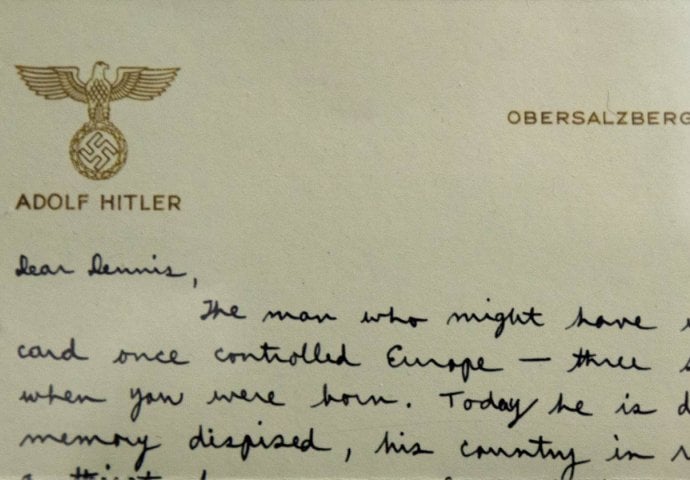 OBERSALZBERG
ADOLF HITLER
Dear Dennis,
The man who might have
card once controlled Europe — three
when you were born. Today he is
memory dispised, his country in
a thirst